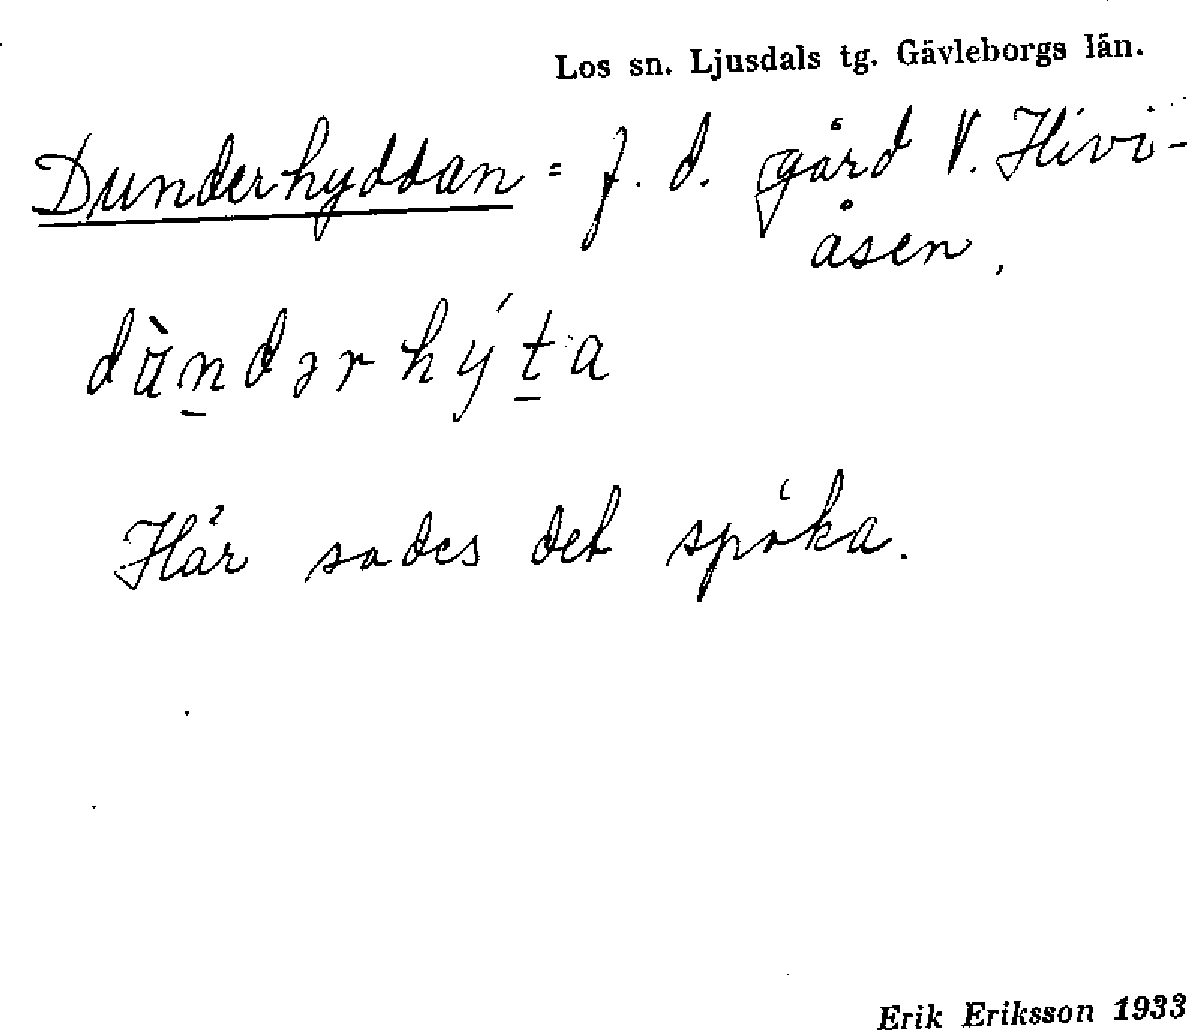 Los sn. Ljusdals tg. Gävleborgs län.
Dunderhyddan = f. d. gård V. Hivi-
åsen,
dùn̠dərhýt̠a
Här sades det spöka.
Erik Eriksson 1933